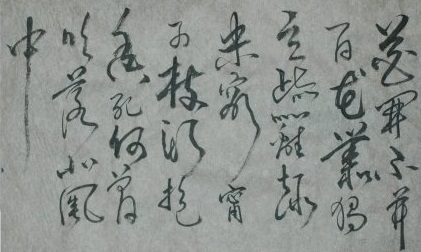 花開不并
百花叢獨
立疏籬趣
未窮甯
可枝頭抱
香死何曾
吹落北風
中